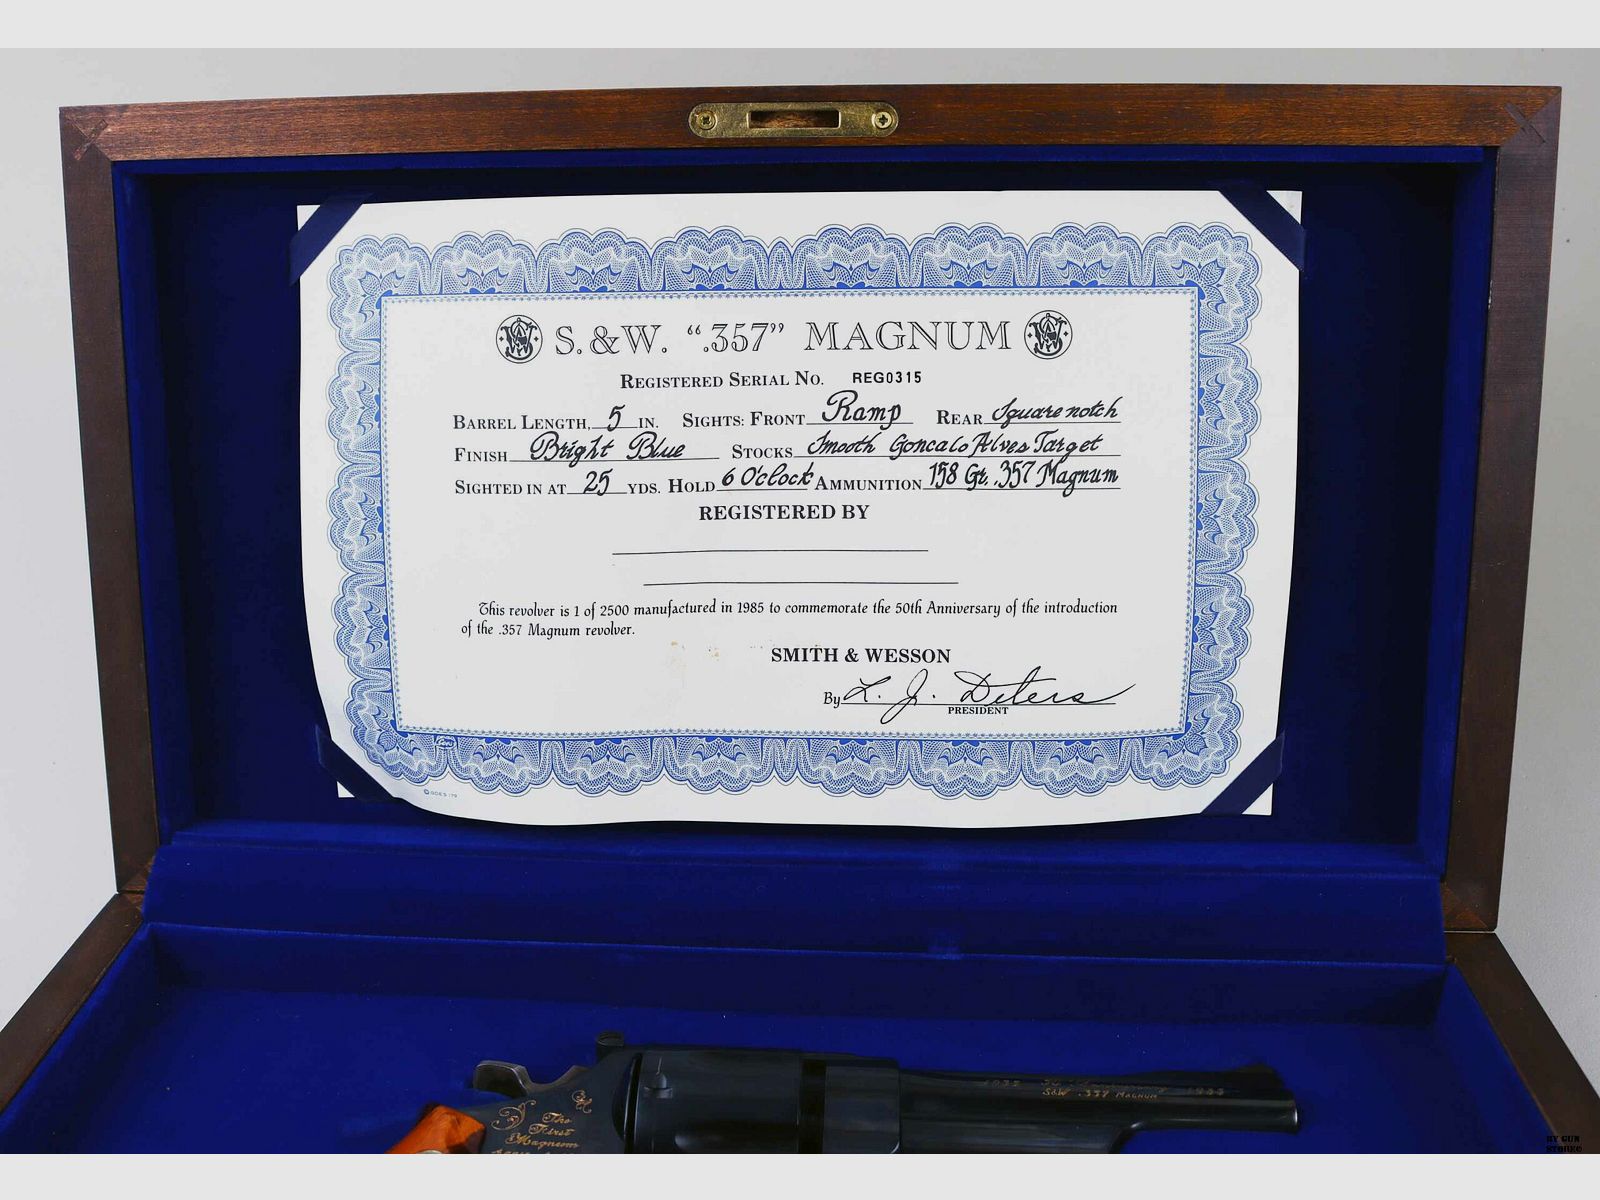 S.&W. “.357” MAGNUM
REGISTERED SERIAL NO. REG0315
BARREL LENGTH, 5 IN. SIGHTS: FRONT Ramp REAR Square notch
FINISH Bright Blue STOCKS Smooth Goncalo Alves Target
SIGHTED IN AT 25 YDS. HOLD 6 O'clock AMMUNITION 158 Gr. .357 Magnum
REGISTERED BY
This revolver is 1 of 2500 manufactured in 1985 to commemorate the 50th Anniversary of the introduction
of the .357 Magnum revolver.
SMITH & WESSON
By L. J. Deters
PRESIDENT
© GOES 179
1935 50th Anniversary 1985
S&W .357 MAGNUM
The
First
Magnum